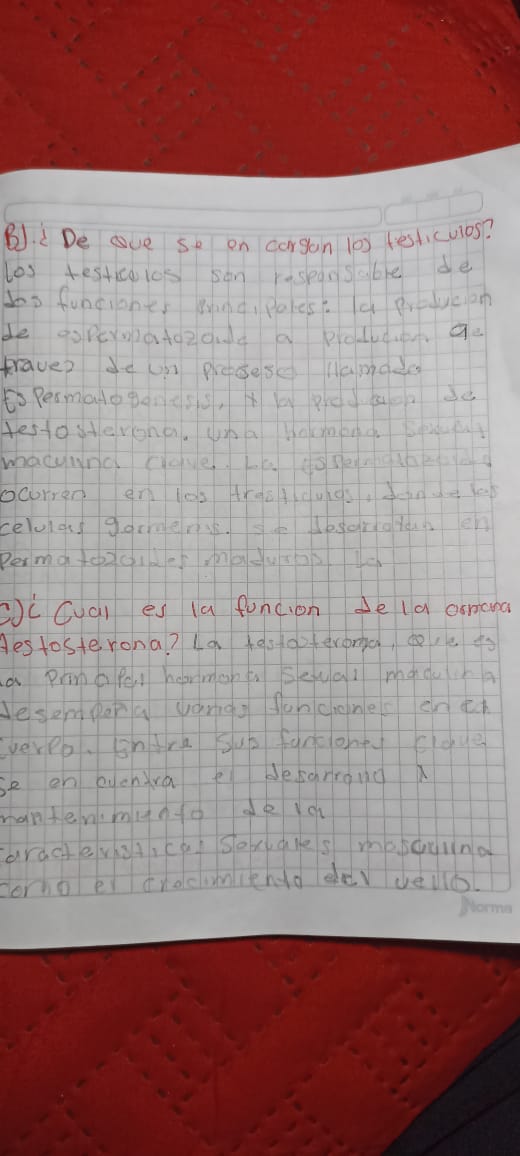 B). ¿ De que se en cargan los testiculos?
Los testiculos son responsable de
dos funciones principales: la producion
de espermatozoide a producion a
travez de un proceso llamado
Espermatogenesis, y la produccion de
testosterona. una hormona sexual
maculina clave. La
ocurren en los testiculos, donde las
celulas germens. se desarrollan en
permatozoides maduros La
C) ¿ Cual es la funcion de la osmona
testosterona? La testosteroma, que es
la principal hormona sexual maculina
desempeña varias funciones en el
cuerpo. Entre sus funciones clave
se en cuentra el desarrollo y
mantenimiento de la
caracteristicas sexuales masculina
como el crecimiento del vello.
Norma